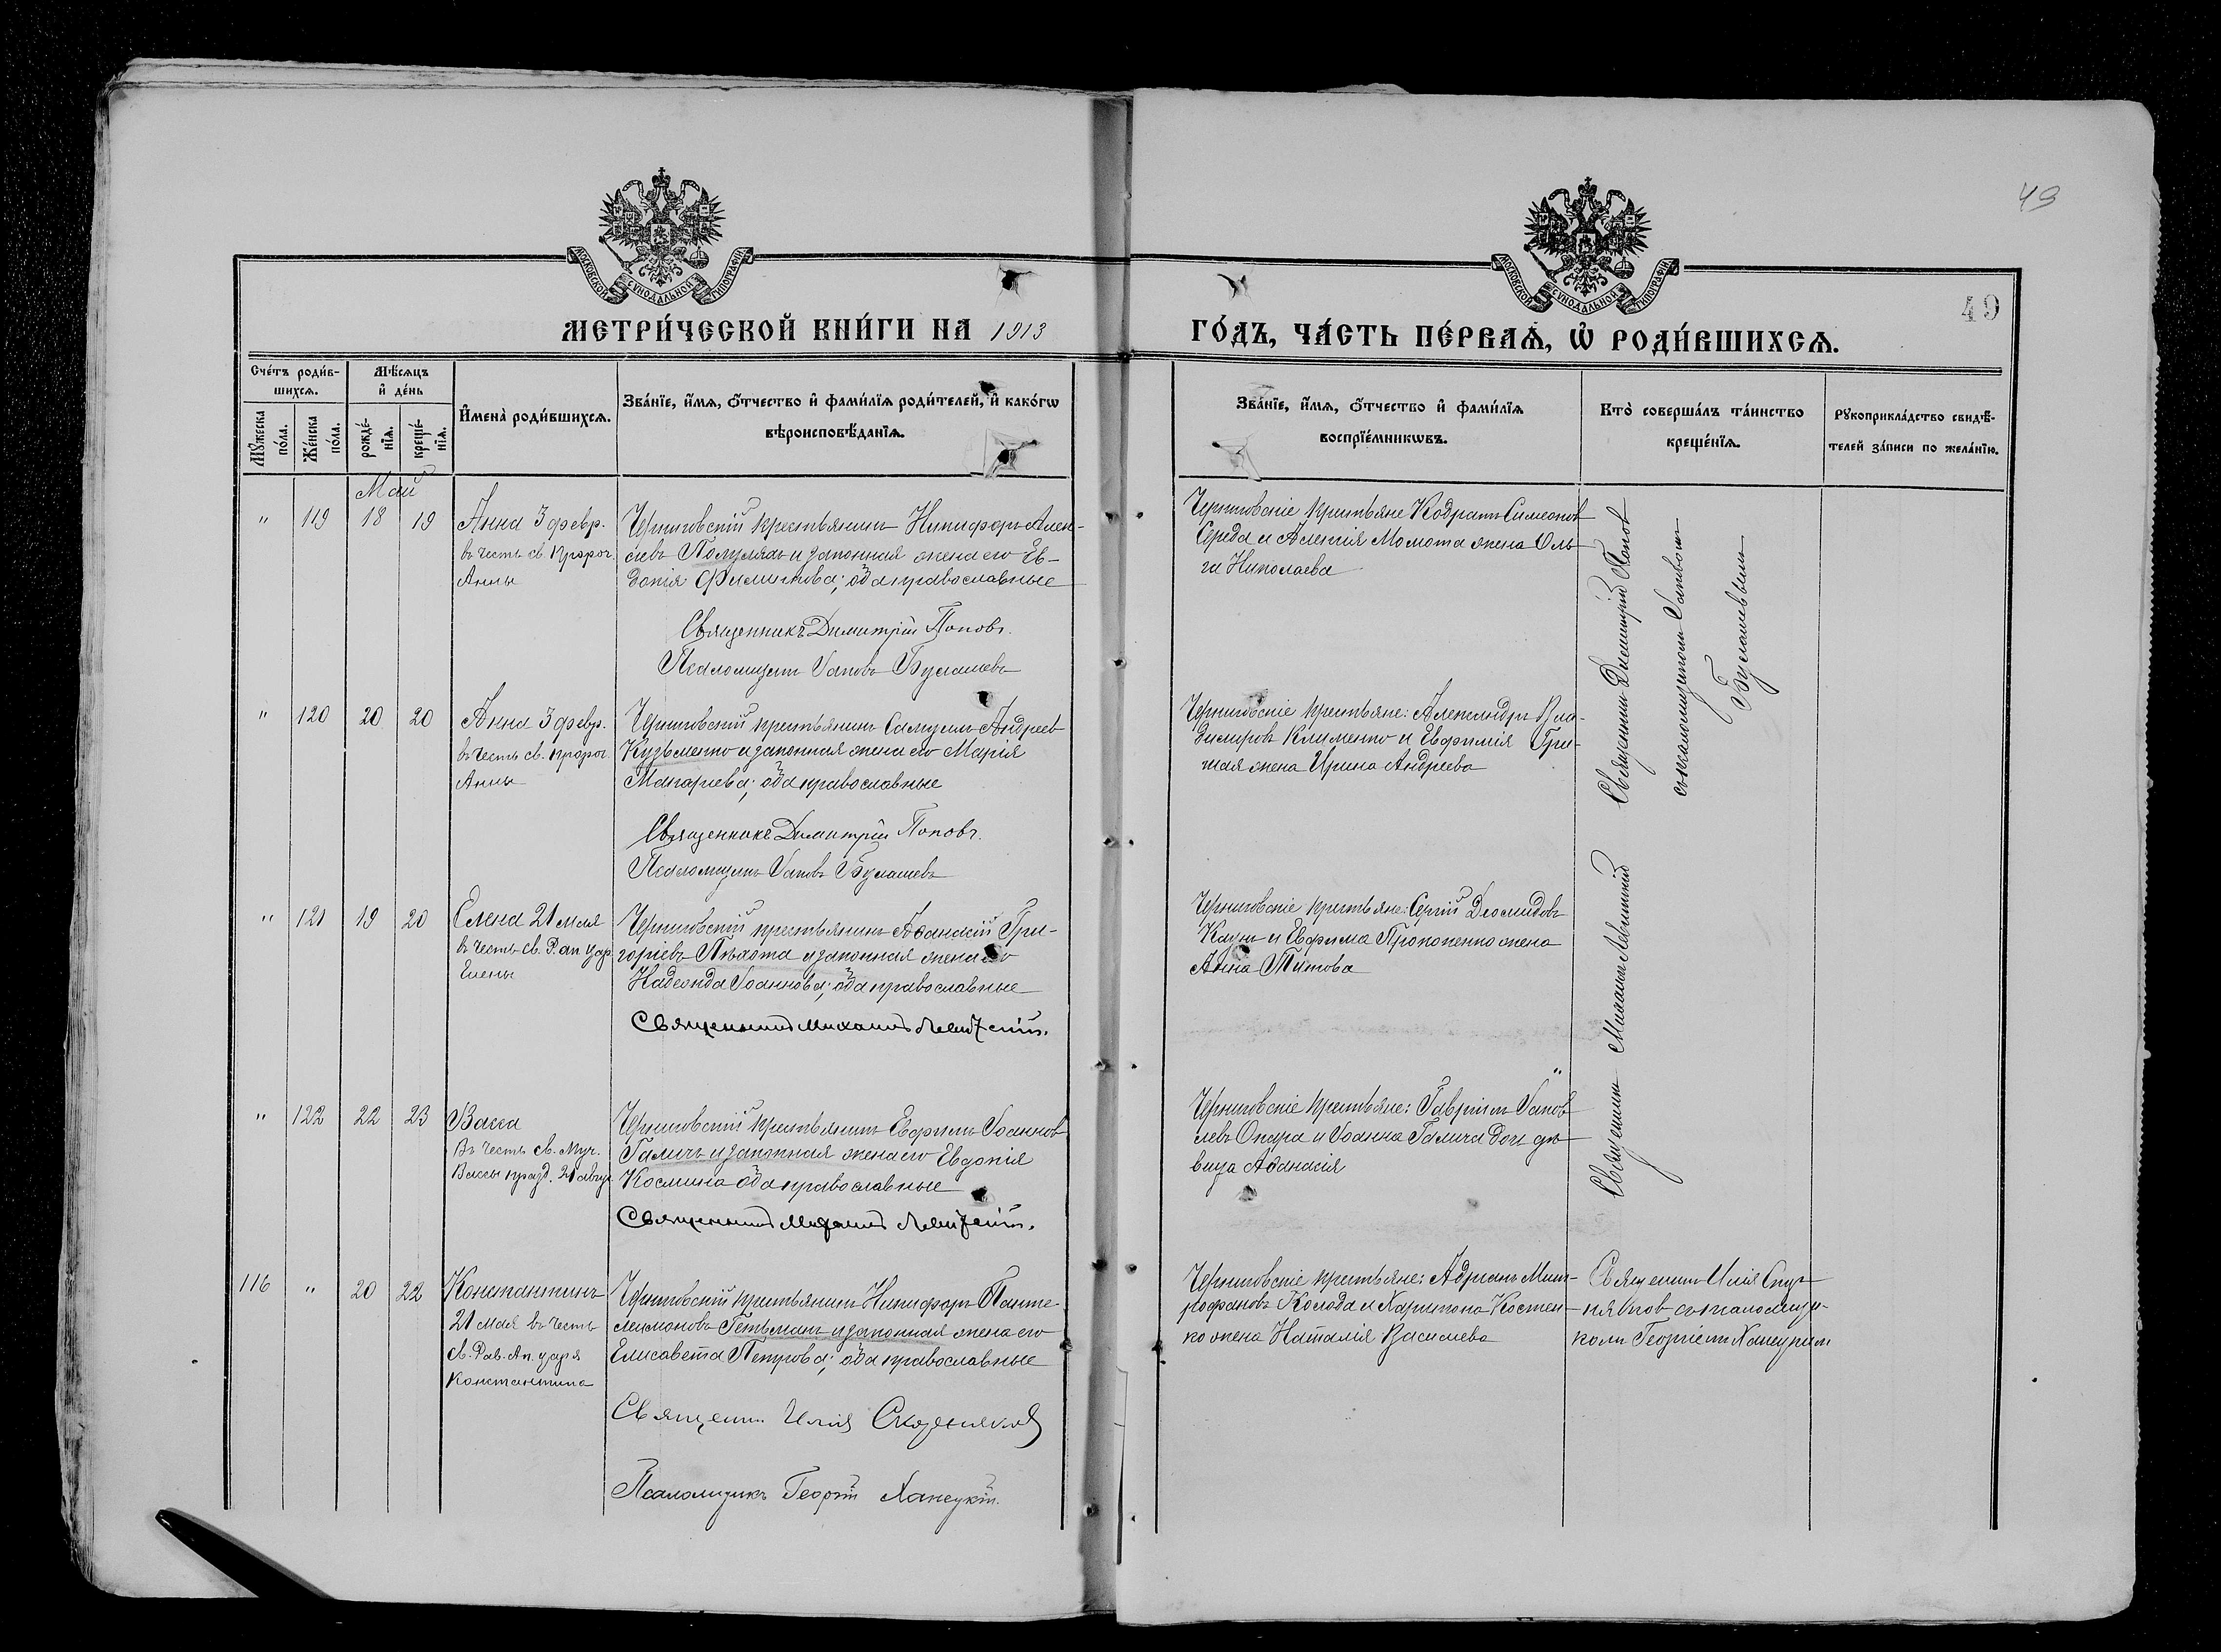 49
МОСКОВСКОЙ СѴНОДАЛЬНОЙ ТИПОГРАФІИ
МОСКОВСКОЙ СѴНОДАЛЬНОЙ ТИПОГРАФІИ
49
МЕТРИ́ЧЕСКОЙ КНИ́ГИ НА 1913
ГО́ДЪ, ЧА́СТЬ ПЕ́РВАѦ, Ѡ РОДИ́ВШИХСѦ.
Сче́тъ роди́в-
шихсѧ.
Мѣ́сѧцъ
и де́нь
Мꙋ́жеска
по́ла.
Же́нска
по́ла.
рожде́-
нїѧ.
креще́-
нїѧ.
И҆мена̀ роди́вшихсѧ.
Зва́нїе, и҆́мѧ, ѻ҆́тчество и҆ фами́лїѧ роди́телей, и҆ како́гѡ
вѣроисповѣ́данїѧ.
Зва́нїе, и҆́мѧ, ѻ҆́тчество и҆ фами́лїѧ
воспрїе́мникѡвъ.
Кто̀ соверша́лъ та́инство
креще́нїѧ.
Рꙋкоприкла́дство свидѣ́-
телей за́писи по жела́нїю.
Май
" 119 18 19
Анна 3 февр.
въ честь св. прор.
Анны
Черниговскій крестьянинъ Никифоръ Алек-
сіевъ и законная жена его Ев-
докія Филиппова; оба православные
Священникъ Димитрій Поповъ.
Псаломщикъ Іаковъ Булашевъ
Черниговскіе крестьяне Кодратъ Симеоновъ
Середа и Алексія Момота жена Оль-
га Николаева
Священникъ Димитрій Попов
съ псаломщикомъ Іаковомъ
Булашевымъ
" 120 20 20
Анна 3 февр.
въ честь св. прор.
Анны
Черниговскій крестьянинъ Самуилъ Андреев
Кузьменко и законная жена его Марія
Макаріева; оба православные
Священникъ Димитрій Поповъ.
Псаломщикъ Іаковъ Булашевъ
Черниговскіе крестьяне: Александръ Вла-
димировъ Клименко и Евфимія Гри-
жена Ирина Андреева
" 121 19 20
Елена 21 мая
въ честь св. Р. ап. цар.
Елены
Черниговскій крестьянинъ Аѳанасій Гри-
горіевъ и законная жена его
Надежда Іоаннова; оба православные
Священникъ Михаилъ
Черниговскіе крестьяне: Сергій Діомидовъ
и Ефима Прокопенко жена
Анна Титова
Священникъ Михаилъ
" 122 22 23
Васса
Въ честь св. муч.
Вассы празд. 21 авгус.
Черниговскій крестьянинъ Ефимъ Іоаннов
Галичъ и законная жена его Евдокія
Космина оба православные
Священникъ Михаилъ
Черниговскіе крестьяне: Гавріилъ Іаков-
левъ Опара и Іоанна Галича дочь дѣ-
вица Аѳанасія
116 " 20 22
Константинъ
21 мая въ честь
св. Рав. Ап. царя
Константина
Черниговскій крестьянинъ Никифоръ Панте-
леимоновъ Гетьманъ и законная жена его
Елисавета Петрова; оба православные
Священникъ Илія
Псаломщикъ Георгій
Черниговскіе крестьяне: Адріанъ Мит-
рофановъ Колода и Харитона Костен-
ко жена Наталія Васильева
Священникъ Илія
съ псаломщи-
комъ Георгіемъ